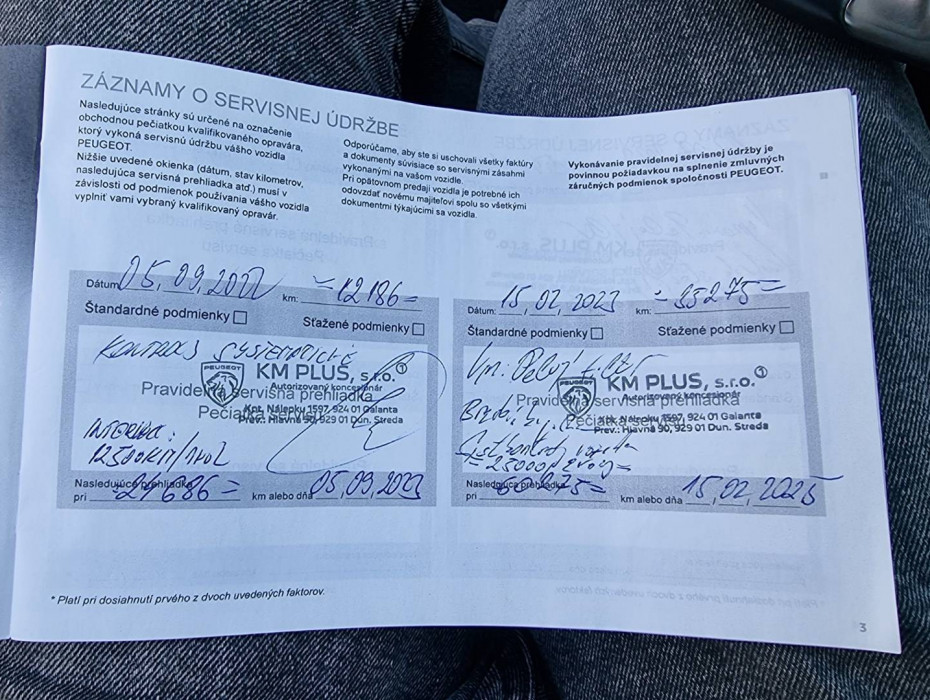 ZÁZNAMY O SERVISNEJ ÚDRŽBE
Nasledujúce stránky sú určené na označenie
obchodnou pečiatkou kvalifikovaného opravára,
ktorý vykoná servisnú údržbu vášho vozidla
PEUGEOT.
Nižšie uvedené okienka (dátum, stav kilometrov,
nasledujúca servisná prehliadka atď.) musí v
závislosti od podmienok používania vášho vozidla
vyplniť vami vybraný kvalifikovaný opravár.
Odporúčame, aby ste si uschovali všetky faktúry
a dokumenty súvisiace so servisnými zásahmi
vykonanými na vašom vozidle.
Pri opätovnom predaji vozidla je potrebné ich
odovzdať novému majiteľovi spolu so všetkými
dokumentmi týkajúcimi sa vozidla.
Vykonávanie pravidelnej servisnej údržby je
povinnou požiadavkou na splnenie zmluvných
záručných podmienok spoločnosti PEUGEOT.
Dátum 05.09.2022 km: =12186=
Štandardné podmienky Sťažené podmienky
KONTROLA SYSTEMATICKÉ
PEUGEOT KM PLUS, s.r.o. 1
Autorizovaný koncesionár
Pravidelná servisná prehliadka
Pečiatka servisu
Kpt. Nálepku 1597, 924 01 Galanta
Prev.: Hlavná 90, 929 01 Dun. Streda
12500KM/1ROK
Nasledujúca prehliadka
pri =24686= km alebo dňa 05.09.2023
Dátum: 15.02.2023 km: =35275=
Štandardné podmienky Sťažené podmienky
PEUGEOT KM PLUS, s.r.o. 1
Autorizovaný koncesionár
Pravidelná servisná prehliadka
Pečiatka servisu
Kpt. Nálepku 1597, 924 01 Galanta
Prev.: Hlavná 90, 929 01 Dun. Streda
Nasledujúca prehliadka
pri =60275= km alebo dňa 15.02.2025
* Platí pri dosiahnutí prvého z dvoch uvedených faktorov.
3